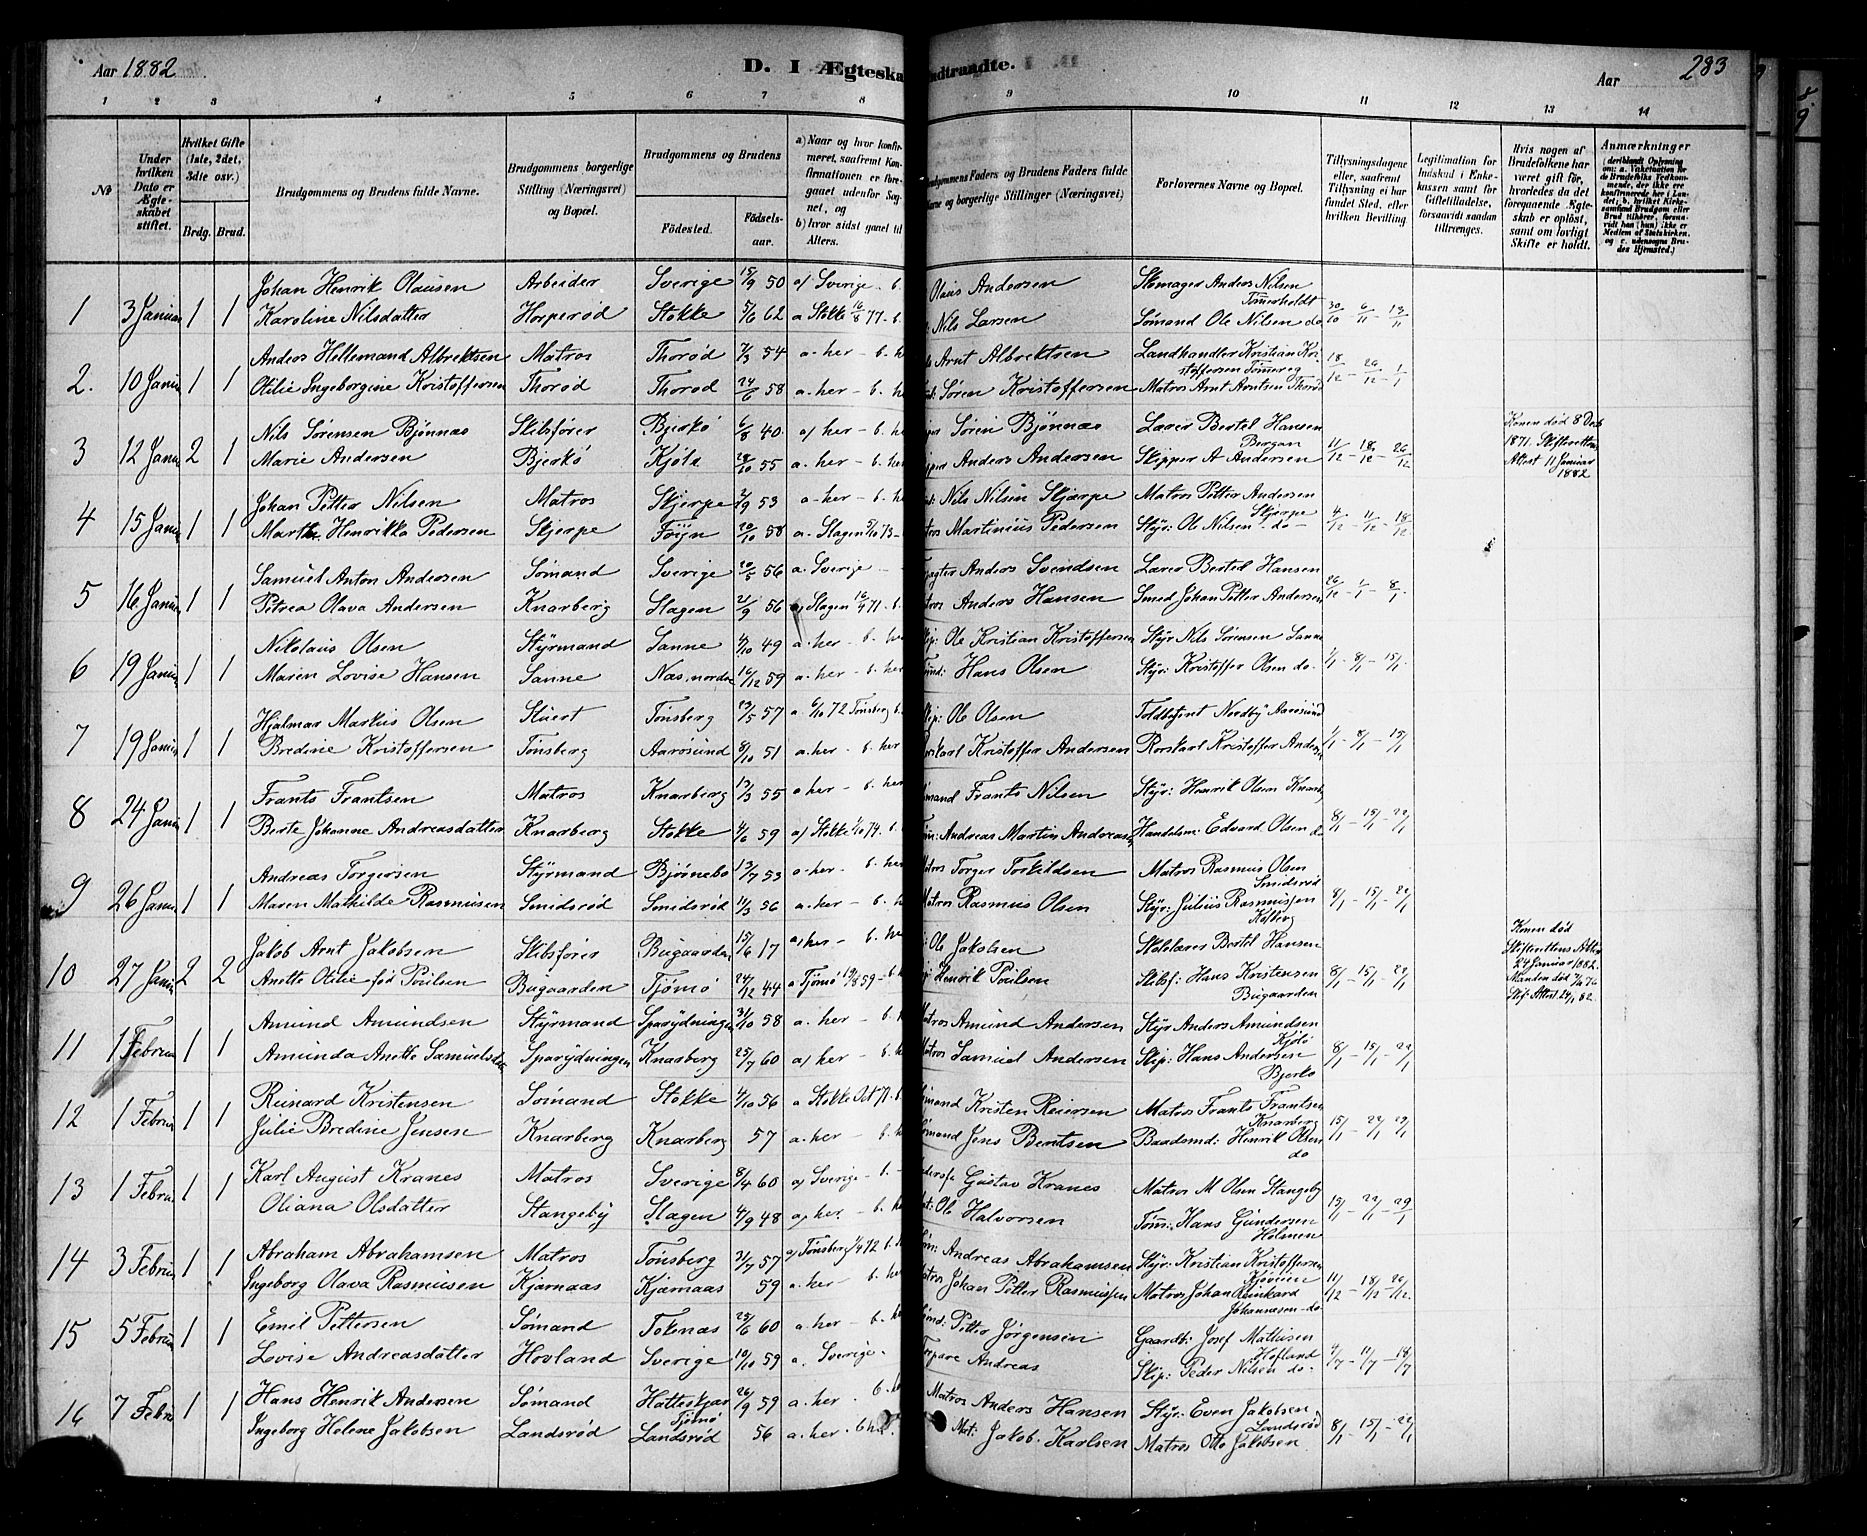 Aar 1882
D. I Ægteska
ndtraadte.
Aar
283
1 2 3 4 5 6 7 8 9 10 11 12 13 14
No
Under hvilken Dato er Ægteskabet stiftet.
Hvilket Gifte (1ste, 2det, 3die osv.)
Brdg. Brud.
Brudgommens og Brudens fulde Navne.
Brudgommens borgerlige Stilling (Næringsvei) og Bopæl.
Brudgommens og Brudens
Fødested. Fødselsaar.
a) Naar og hvor konfirmeret, saafremt Konfirmationen er foregaaet udenfor Sognet, og
b) hvor sidst gaaet til Alters.
udgommens Faders og Brudens Faders fulde
avne og borgerlige Stillinger (Næringsvei)
Forlovernes Navne og Bopæl.
Tillysningsdagene eller, saafremt Tillysning ei har fundet Sted, efter hvilken Bevilling.
Legitimation for Indskud i Enkekassen samt for Giftetilladelse, forsaavidt saadan tiltrænges.
Hvis nogen af Brudefolkene har været gift før, hvorledes da det foregaaende Ægteskab er opløst, samt om lovligt Skifte er holdt.
Anmærkninger
1 3 Januar 1 1 Johan Henrik Olausen Arbeider Sverige 15/9 50 a) Sverige - b. Olaus Andersen Skomager Anders Nilsen Tømmerholdt 30/10 - 6/11 - 13/11
Karoline Nilsdatter Horperød Stokke 5/6 62 a Stokke 16/8 77 - b. Nils Larsen Sømand Ole Nilsen do
2. 10 Janu 1 1 Anders Hellemand Albrektsen Matros Thorød 7/3 54 a. her - b. he Arnt Albrektsen Landhandler Kristian Kristoffersen 18/12 - 26/12 - 1/1
Otilie Ingeborgine Kristoffersen Thorød Thorød 24/6 58 a. her - b. he Søren Kristoffersen Matros Arnt Arntsen Thorød
3 12 Janu 2 1 Nils Sørensen Bjønnæs Skibsfører Bjerkø 6/8 40 a) her - b. her Søren Bjønnæs Lærer Bertel Hansen Bergan 11/12 - 18/12 - 26/12 Konen død 8 Decb 1871. Skifterettens Attest 11 Januar 1882
Marie Andersen Bjerkø Kjølø 28/10 55 a. her - b. her Anders Andersen Skipper A Andersen
4 15 Janu 1 1 Johan Petter Nilsen Matros Skjerpe 7/9 53 a. her - b. her Nils Nilsen Skjærpe Matros Petter Andersen Skjerpe 4/12 - 11/12 - 18/12
Marthe Henrikka Pedersen Skjerpe Føyn 20/10 58 a. Slagen 5/10 73 - Martinius Pedersen Styr: Ole Nilsen - do -
5 16 Janu 1 1 Samuel Anton Andersen Sømand Sverige 20/5 56 a. Sverige - Anders Svendsen Lærer Bertel Hansen 26/12 - 1/1 - 8/1
Petrea Olava Andersen Knarberg Slagen 21/9 56 a) Slagen 16/4 71 - b. Anders Hansen Smed Johan Petter Andersen
6 19 Janu 1 1 Nikolaus Olsen Styrmand Sanne 4/10 49 a. her - b. he Ole Kristian Kristoffersen Styr Nils Sørensen Sanne 1/1 - 8/1 - 15/1
Maren Lovise Hansen Sanne Næs, nordre 16/12 59 a. her - b. her Hans Olsen Styr: Kristoffer Olsen do -
7 19 Janu 1 1 Hjalmar Markus Olsen Stuert Tønsberg 23/5 57 a. 6/10 72 Tønsberg b. Ole Olsen Toldbetjent Nordby Aarøsund 1/1 - 8/1 - 15/1
Bredine Kristoffersen Tønsberg Aarøsund 8/10 51 a. her - b. her Kristoffer Andersen Rorskarl Kristoffer Andersen
8 24 Janu 1 1 Frants Frantsen Matros Knarberg 13/3 55 a. her - b. her Frants Nilsen Styr: Henrik Olsen Knarberg 8/1 - 15/1 - 22/1
Berte Johanne Andreasdatter Knarberg Stokke 4/6 59 a) Stokke 4/10 74. b. Andreas Martin Andreasen Handelsm: Edvard Olsen do
9 26 Janu 1 1 Andreas Torgersen Styrmand Bjørnebo 13/7 53 a. her. b. her Matros Torger Torkildsen Matros Rasmus Olsen Smidsrød 8/1 - 15/1 - 22/1
Maren Mathilde Rasmusen Smidsrød Smidsrød 11/3 56 a. her - b. her Matros Rasmus Olsen Styr: Julius Rasmussen
10 27 Janu 2 2 Jakob Arnt Jakobsen Skibsfører Bugaarden 15/6 17 a) her - b. her Ole Jakobsen Skolelærer Bertel Hansen 8/1 - 15/1 - 22/1 Konen død Skifterettens Attest 24 Januar 1882.
Anette Otilie fød Poulsen Bugaarden Tjømø 24/12 44 a Tjømø 19/8 59 - b. h Henrik Poulsen Skibsf: Hans Kristensen Bugaarden Manden død 7/6 76 Skif: Attest 24/1 82.
11 1 Februa 1 1 Amund Amundsen Styrmand Sparydningen 31/10 58 a. her - b. her Matros Amund Andersen Styr Anders Amundsen Kjølø 8/1 - 15/1 - 22/1
Amunda Anette Samuelsdtr Sparydningen Knarberg 25/7 60 a) her - b. he Matros Samuel Andersen Skip: Hans Andersen Bjerkø
12 1 Februa 1 1 Reinard Kristensen Sømand Stokke 4/10 56 a Stokke Oct 71 - b. Sømand Kristen Reiersen Matros Frants Frantsen Knarberg 15/1 - 22/1 - 29/1
Julie Bredine Jensen Knarberg Knarberg 57 a. her - b. he Sømand Jens Bentsen Baadsmd: Henrik Olsen do
13 1 Febru 1 1 Karl August Kranes Matros Sverige 8/4 60 a) Sverige - b. - Gustav Kranes Matros M Olsen Stangeby 15/1 - 22/1 - 29/1
Oliana Olsdatter Stangeby Slagen 4/9 48 a) her. b. her Ole Halvorsen Tøm: Hans Gundersen Holmen
14 3 Februa 1 1 Abraham Abrahamsen Matros Tønsberg 31/7 57 a) Tønsberg 1/4 72 b. h Andreas Abrahamsen Styr: Kristian Kristoffersen 11/12 - 18/12 - 26/12
Ingeborg Olava Rasmusen Kjærnaas Kjærnaas 59 a. her - b. her Matros Johan Petter Rasmussen Matros Johan Reinhard Johannesen - do -
15 5 Februa 1 1 Emil Pettersen Sømand Tokenæs 25/6 60 a. her - b. he Petter Jørgensen Gaardb: Josef Mathisen Hofland 4/7 - 11/7 - 18/7
Lovise Andreasdatter Hovland Sverige 10/10 59 a. Sverige - Torpare Andreas Skip: Peder Nilsen do -
16 7 Febru 1 1 Hans Henrik Andersen Sømand Hatteskjær Tjømø 26/9 59 a. her. b. he Matros Anders Hansen Styr: Even Jakobsen Landsrød 8/1 - 15/1 - 22/1
Ingeborg Helene Jakobsen Landsrød Landsrød 56 a. her. b her. Mat: Jakob Karlsen Matros Otto Jakobsen